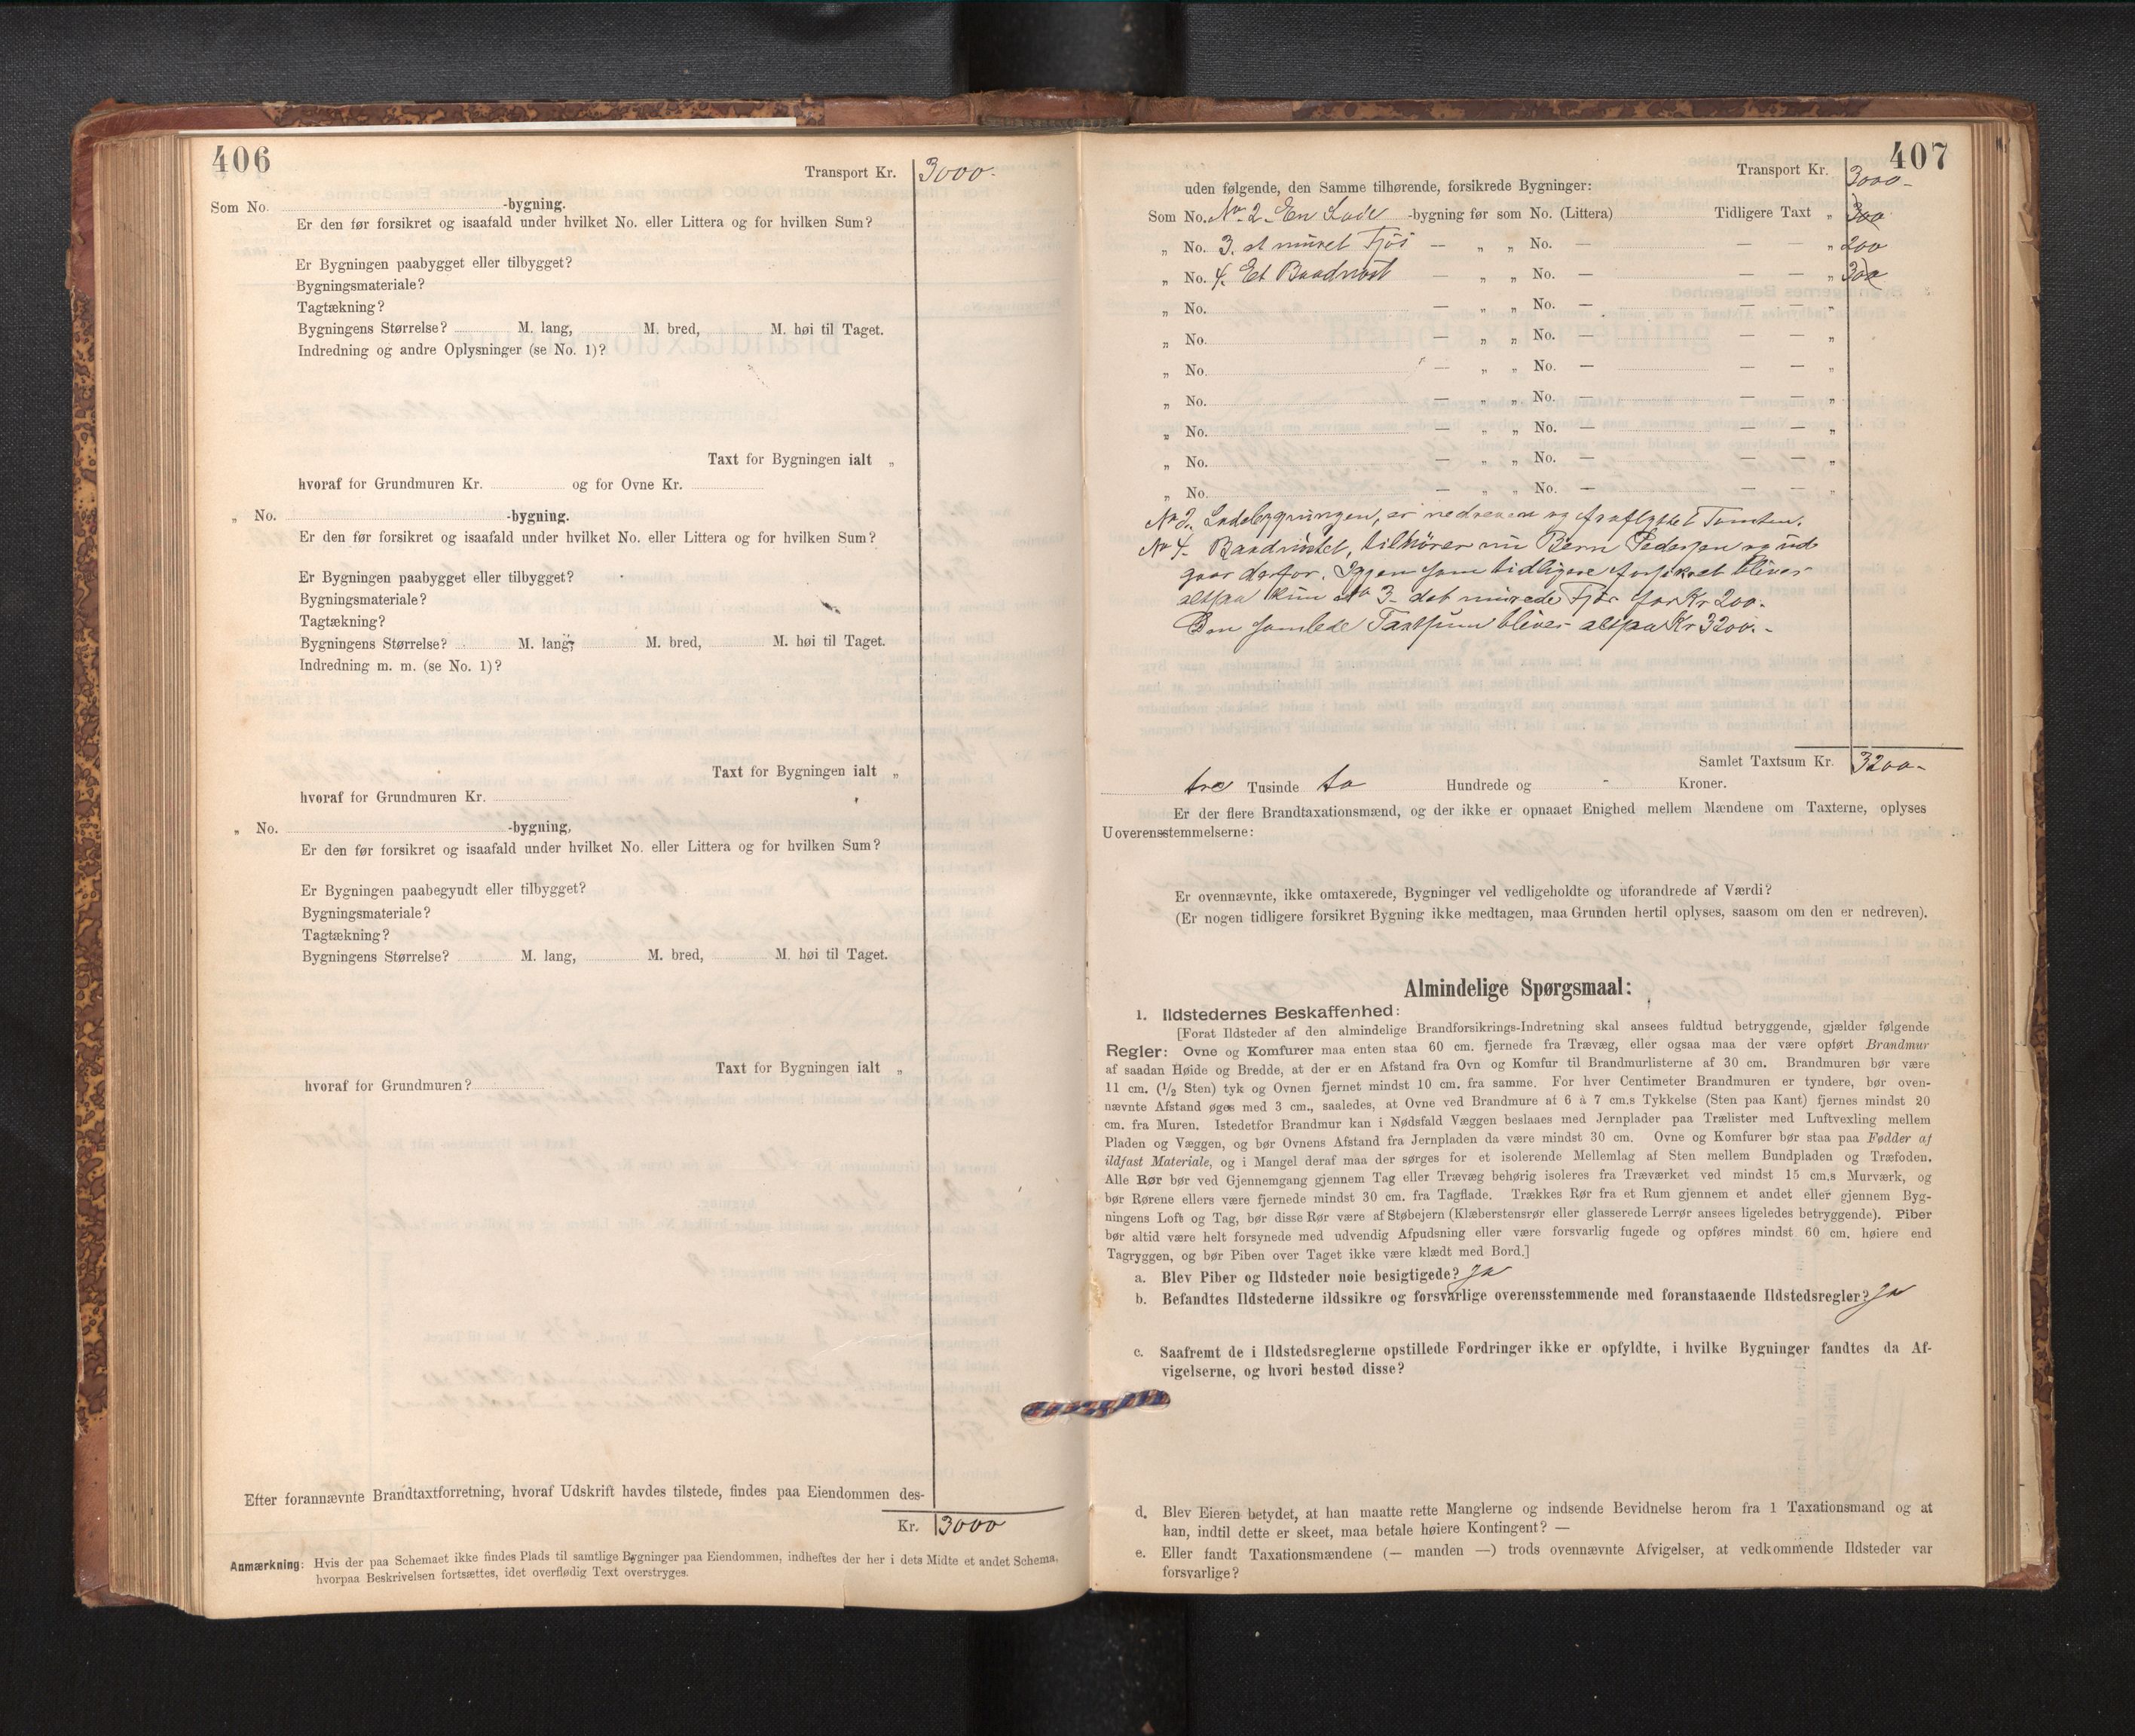 406
Transport Kr. 3000.
Som No. -bygning.
Er den før forsikret og isaafald under hvilket No. eller Littera og for hvilken Sum?
Er Bygningen paabygget eller tilbygget?
Bygningsmateriale?
Tagtækning?
Bygningens Størrelse? M. lang, M. bred, M. høi til Taget.
Indredning og andre Oplysninger (se No. 1)?
Taxt for Bygningen ialt „
hvoraf for Grundmuren Kr. og for Ovne Kr.
„ No. -bygning.
Er den før forsikret og isaafald under hvilket No. eller Littera og for hvilken Sum?
Er Bygningen paabygget eller tilbygget?
Bygningsmateriale?
Tagtækning?
Bygningens Størrelse? M. lang, M. bred, M. høi til Taget.
Indredning m. m. (se No. 1)?
Taxt for Bygningen ialt „
hvoraf for Grundmuren Kr.
„ No. -bygning,
Er den før forsikret og isaafald under hvilket No. eller Littera og for hvilken Sum?
Er Bygningen paabegyndt eller tilbygget?
Bygningsmateriale?
Tagtækning?
Bygningens Størrelse? M. lang, M. bred, M. høi til Taget.
Taxt for Bygningen ialt „
hvoraf for Grundmuren?
Efter forannævnte Brandtaxtforretning, hvoraf Udskrift havdes tilstede, findes paa Eiendommen des-
Kr. 3000
Anmærkning: Hvis der paa Schemaet ikke findes Plads til samtlige Bygninger paa Eiendommen, indheftes der her i dets Midte et andet Schema,
hvorpaa Beskrivelsen fortsættes, idet overflødig Text overstryges.
407
Transport Kr. 3000-
uden følgende, den Samme tilhørende, forsikrede Bygninger:
Som No. No. 2. En Lade -bygning før som No. (Littera) Tidligere Taxt „ 300
„ No. 3. et muret Fjøs — „ „ No. — — — „ 200
„ No. 4. Et Baadnøst — „ „ No. — — — „ 300
„ No. — „ „ No. — — — „
„ No. — „ „ No. — — — „
„ No. — „ „ No. — — — „
„ No. — „ „ No. — — — „
„ No. — „ „ No. — — — „
„ No. — „ „ No. — — — „
„ No. — „ „ No. — — — „
No 2. Ladebygningen, er nedreven og fraflyttet Tomten.
No 4. Baadnøstet, tilhører nu Bern Pedersen og ud
gaar derfor. Igjen som tidligere forsikret bliver
altsaa kun No 3. det murede Fjøs for Kr 200.
Den samlede Taxtsum bliver altsaa Kr 3200.-
Samlet Taxtsum Kr. 3200-
tre Tusinde to Hundrede og - Kroner.
Er der flere Brandtaxationsmænd, og der ikke er opnaaet Enighed mellem Mændene om Taxterne, oplyses
Uoverensstemmelserne:
Er ovennævnte, ikke omtaxerede, Bygninger vel vedligeholdte og uforandrede af Værdi?
(Er nogen tidligere forsikret Bygning ikke medtagen, maa Grunden hertil oplyses, saasom om den er nedreven).
Almindelige Spørgsmaal:
1. Ildstedernes Beskaffenhed:
[Forat Ildsteder af den almindelige Brandforsikrings-Indretning skal ansees fuldtud betryggende, gjælder følgende
Regler: Ovne og Komfurer maa enten staa 60 cm. fjernede fra Trævæg, eller ogsaa maa der være opført Brandmur
af saadan Høide og Bredde, at der er en Afstand fra Ovn og Komfur til Brandmurlisterne af 30 cm. Brandmuren bør være
11 cm. (1/2 Sten) tyk og Ovnen fjernet mindst 10 cm. fra samme. For hver Centimeter Brandmuren er tyndere, bør oven-
nævnte Afstand øges med 3 cm., saaledes, at Ovne ved Brandmure af 6 à 7 cm.s Tykkelse (Sten paa Kant) fjernes mindst 20
cm. fra Muren. Istedetfor Brandmur kan i Nødsfald Væggen beslaaes med Jernplader paa Trælister med Luftvexling mellem
Pladen og Væggen, og bør Ovnens Afstand fra Jernpladen da være mindst 30 cm. Ovne og Komfurer bør staa paa Fødder af
ildfast Materiale, og i Mangel deraf maa der sørges for et isolerende Mellemlag af Sten mellem Bundpladen og Træfoden.
Alle Rør bør ved Gjennemgang gjennem Tag eller Trævæg behørig isoleres fra Træværket ved mindst 15 cm.s Murværk, og
bør Rørene ellers være fjernede mindst 30 cm. fra Tagflade. Trækkes Rør fra et Rum gjennem et andet eller gjennem Byg-
ningens Loft og Tag, bør disse Rør være af Støbejern (Klæberstensrør eller glasserede Lerrør ansees ligeledes betryggende). Piber
bør altid være helt forsynede med udvendig Afpudsning eller være forsvarlig fugede og opføres mindst 60 cm. høiere end
Tagryggen, og bør Piben over Taget ikke være klædt med Bord.]
a. Blev Piber og Ildsteder nøie besigtigede? Ja
b. Befandtes Ildstederne ildssikre og forsvarlige overensstemmende med foranstaaende Ildstedsregler? Ja
c. Saafremt de i Ildstedsreglerne opstillede Fordringer ikke er opfyldte, i hvilke Bygninger fandtes da Af-
vigelserne, og hvori bestod disse?
d. Blev Eieren betydet, at han maatte rette Manglerne og indsende Bevidnelse herom fra 1 Taxationsmand og at
han, indtil dette er skeet, maa betale høiere Kontingent? —
e. Eller fandt Taxationsmændene (— manden —) trods ovennævnte Afvigelser, at vedkommende Ildsteder var
forsvarlige?